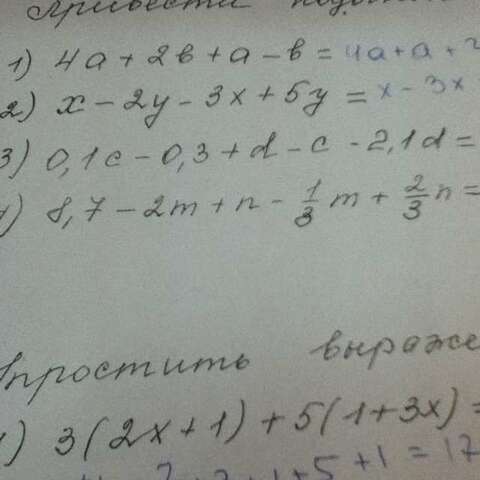 Привести
1) 4a + 2b + a - b = 4a + a +
2) x - 2y - 3x + 5y = x - 3x
3) 0,1c - 0,3 + d - c - 2,1d =
) 8,7 - 2m + n - 1/3 m + 2/3 n =
простить выраже
) 3(2x+1) + 5(1+3x) =
+5+1 = 17